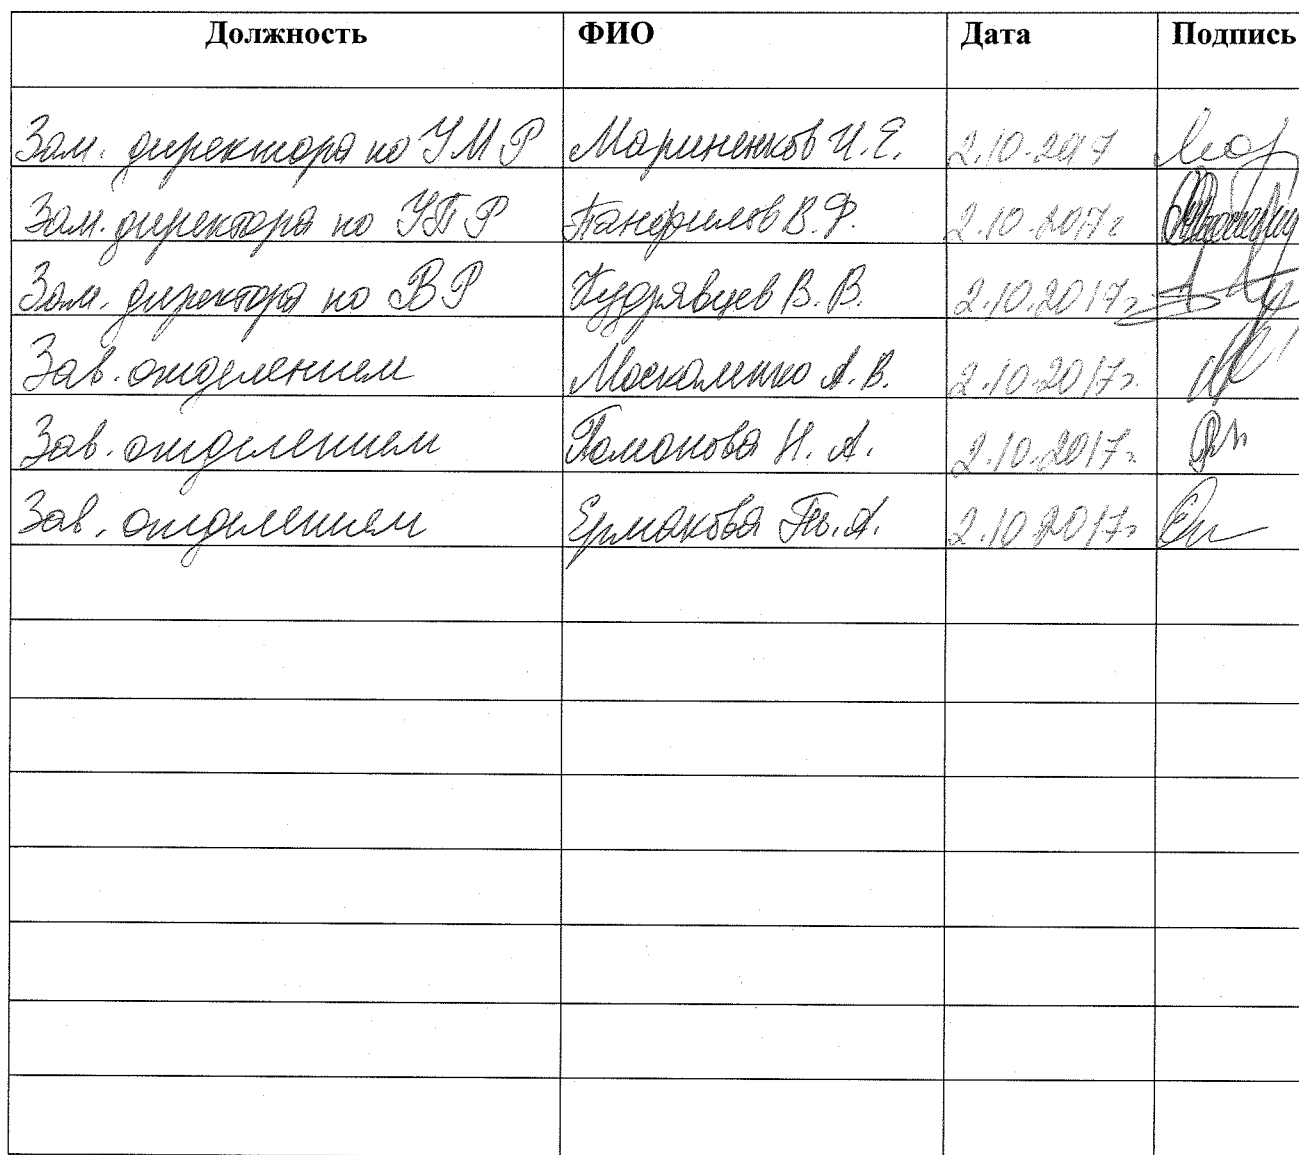 Должность ФИО Дата Подпись
Зам. директора по УМР Мариненков И.Е. 2.10.2017
Зам. директора по УПР Панфилов В.Ф. 2.10.2017г
Зам. директора по ВР Кудрявцев В.В. 2.10.2017г.
Зав. отделением Москаленко А.В. 2.10.2017г.
Зав. отделением Н.А. 2.10.2017г.
Зав. отделением Ермакова Т.А. 2.10.2017г